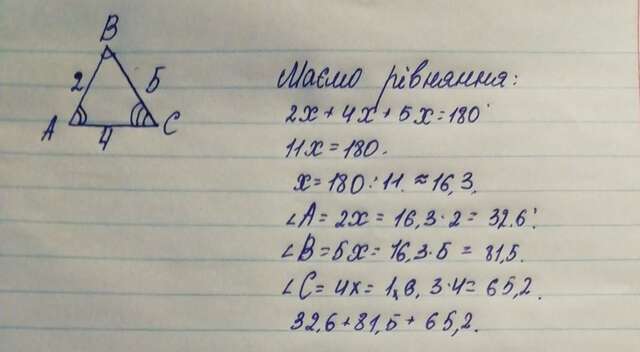 B
2 5
A 4 C
Маємо рівняння:
2x + 4x + 5x = 180°
11x = 180.
x = 180 : 11 ≈ 16,3.
∠A = 2x = 16,3 · 2 = 32.6°.
∠B = 5x = 16,3 · 5 = 81,5.
∠C = 4x = 16, 3 · 4 = 65,2.
32,6 + 81,5 + 65,2.